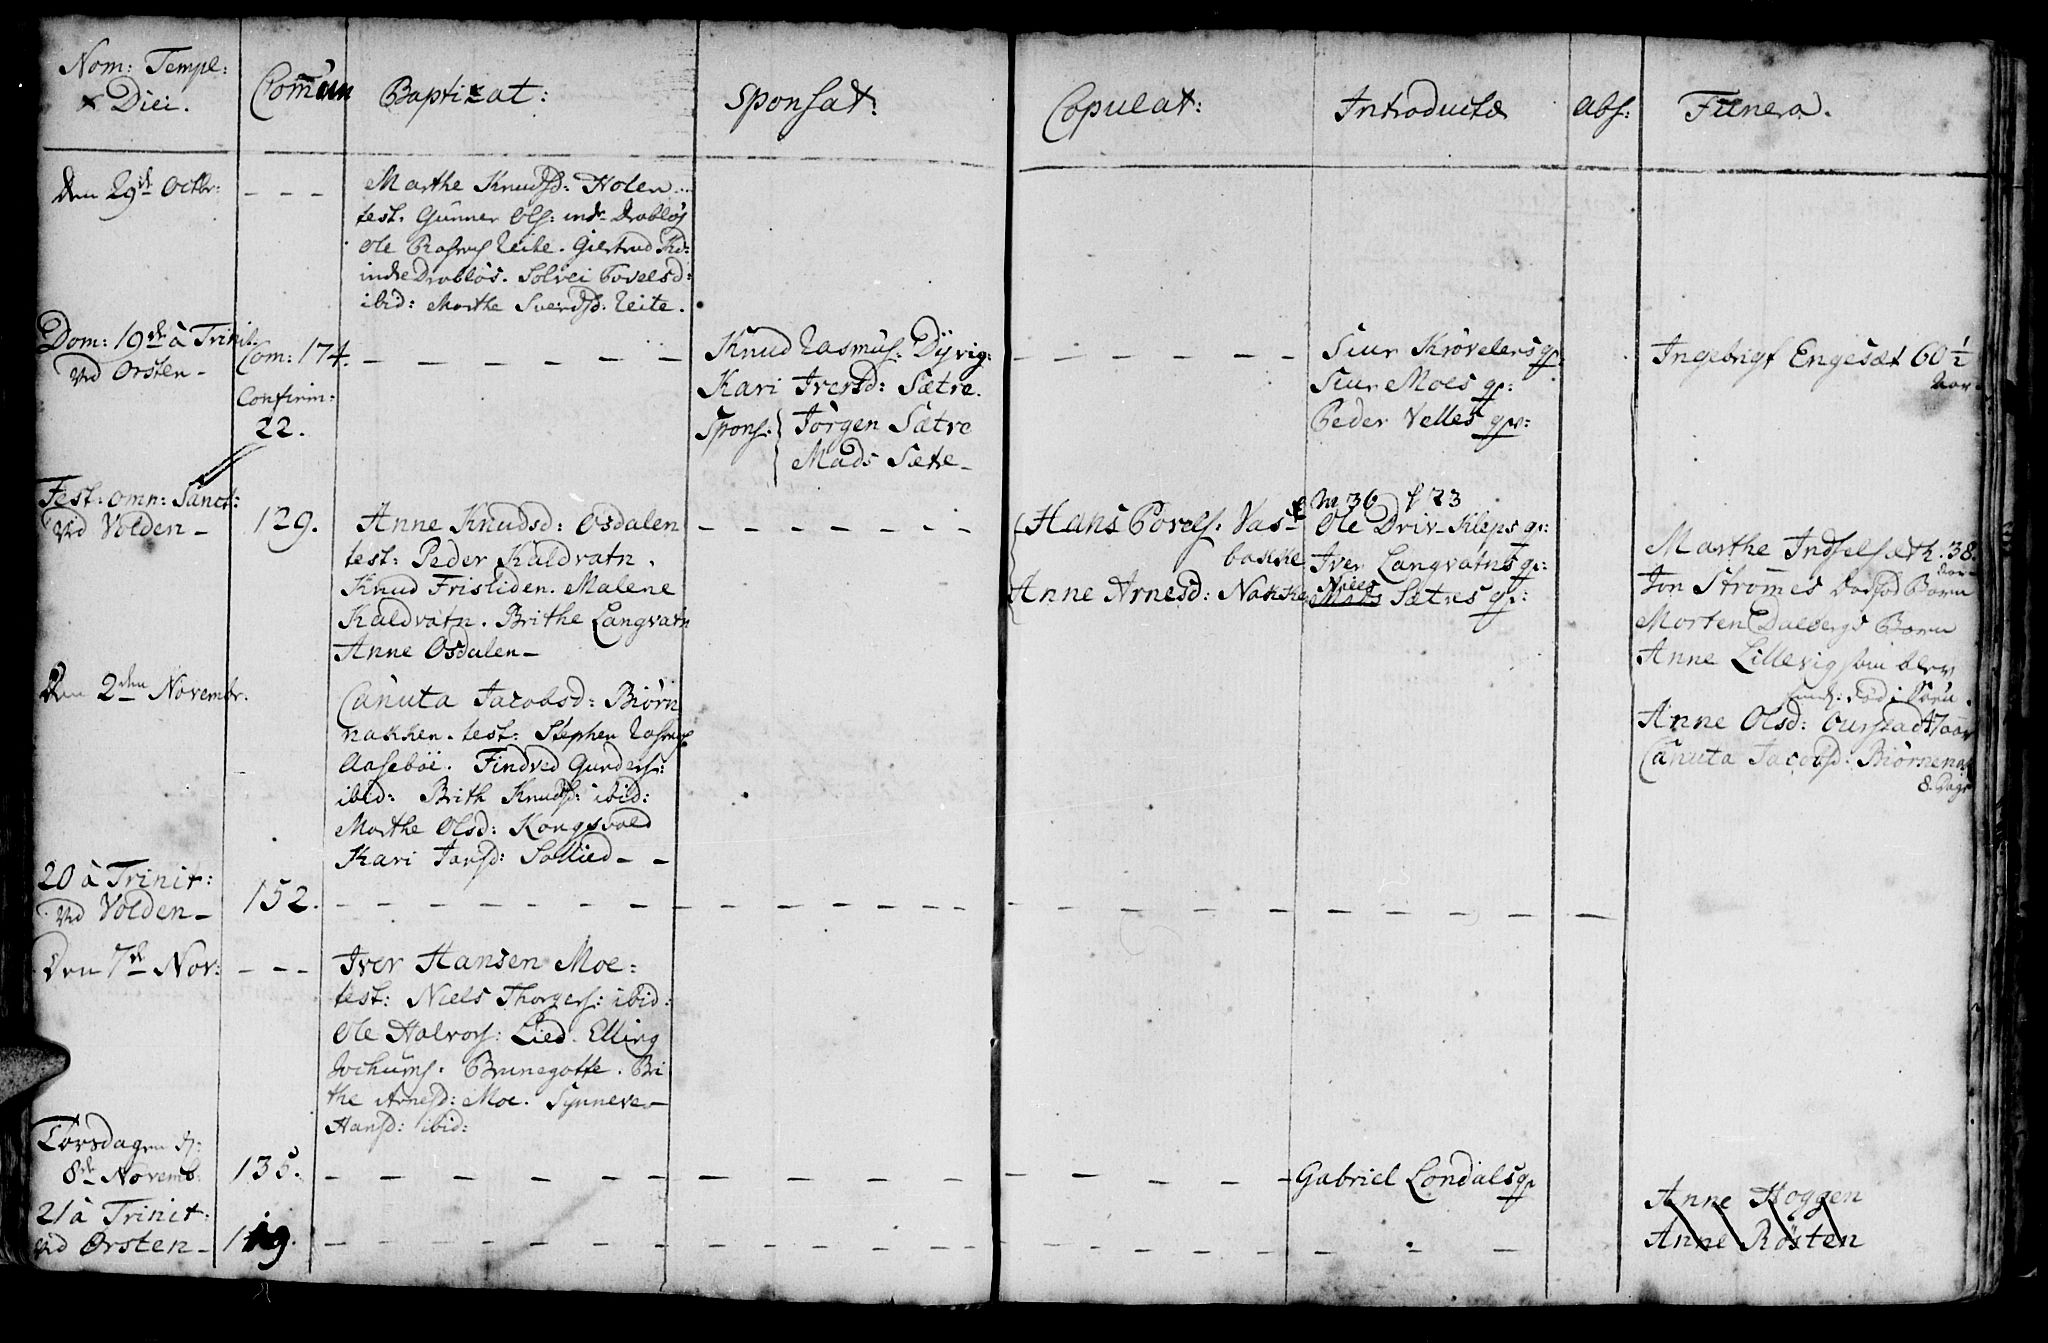 Nom: Templ:
Diei.
Com̄un
Baptizat:
Sponsat:
Copulat:
Introductæ
abs:
Funera.
Den 29de Octbr: - - -
Marthe Knudsd: Holen
test. Gunner Ols: indr Drabløs
Ole Rasmus Leite. Giertrud Kd:
indre Drabløs. Solvei Povelsd:
ibid: Marthe Siverdsd: Leite.
Dom: 19de à Trinit.
ved Ørsten -
Com: 174.
Confirm:
22.
Knud Rasmus: Dyvig:
Kari Iversd: Sætre.
Spons: Jørgen Sætre
Mads Sætre -
Siur Krøvelens qv:
Siur Moes qv:
Peder Velles qv:
Ingebrigt Engesæt 60 1/2
Aar.
Fest: omn: Sanct:
ved Volden -
129.
Anne Knudsd: Osdalen
test: Peder Kaldvatn.
Knud Frisliden. Malene
Kaldvatn. Brithe Langvatn
Anne Osdalen -
Hans Povels: Vas-
bakke
Anne Arnesd: Nakke
M 36 f 23
Ole Driv-Kleps qv:
Iver Langvatns qv:
Niels
Mads Sætres qv:
Marthe Indselsæth. 38.
Aar
Jon Strømmes dødfød Barn
Morten Dalebergs Barn
Anne Lillevig som blev
død i
Anne Olsd: Ourstad 47 aar
Canuta Jacobsd: Biørnenak
8. Dage
Den 2den Novembr.
Canuta Jacobsd: Biørn
nakken. test: Stephen Rasmus
Aasebøe. Findved Gunders:
ibid: Brith Knudsd: ibid:
Marthe Olsd: Kongsvold
Kari Jansd: Sollied - -
20 à Trinit:
ved Volden -
152.
Den 7de Nov: - - -
Iver Hansen Moe:
test: Niels Thorgers: ibid:
Ole Halvors: Lied. Elling
Jochums: Brunegotte. Bri
the Arnesd: Moe. Synneve
Hansd: ibid:
Torsdagen d:
8de Novemb:
135.
Gabriel Londals qv
21 à Trinit:
ved Ørsten -
119.
Anne Hoggen
Anne Røsten